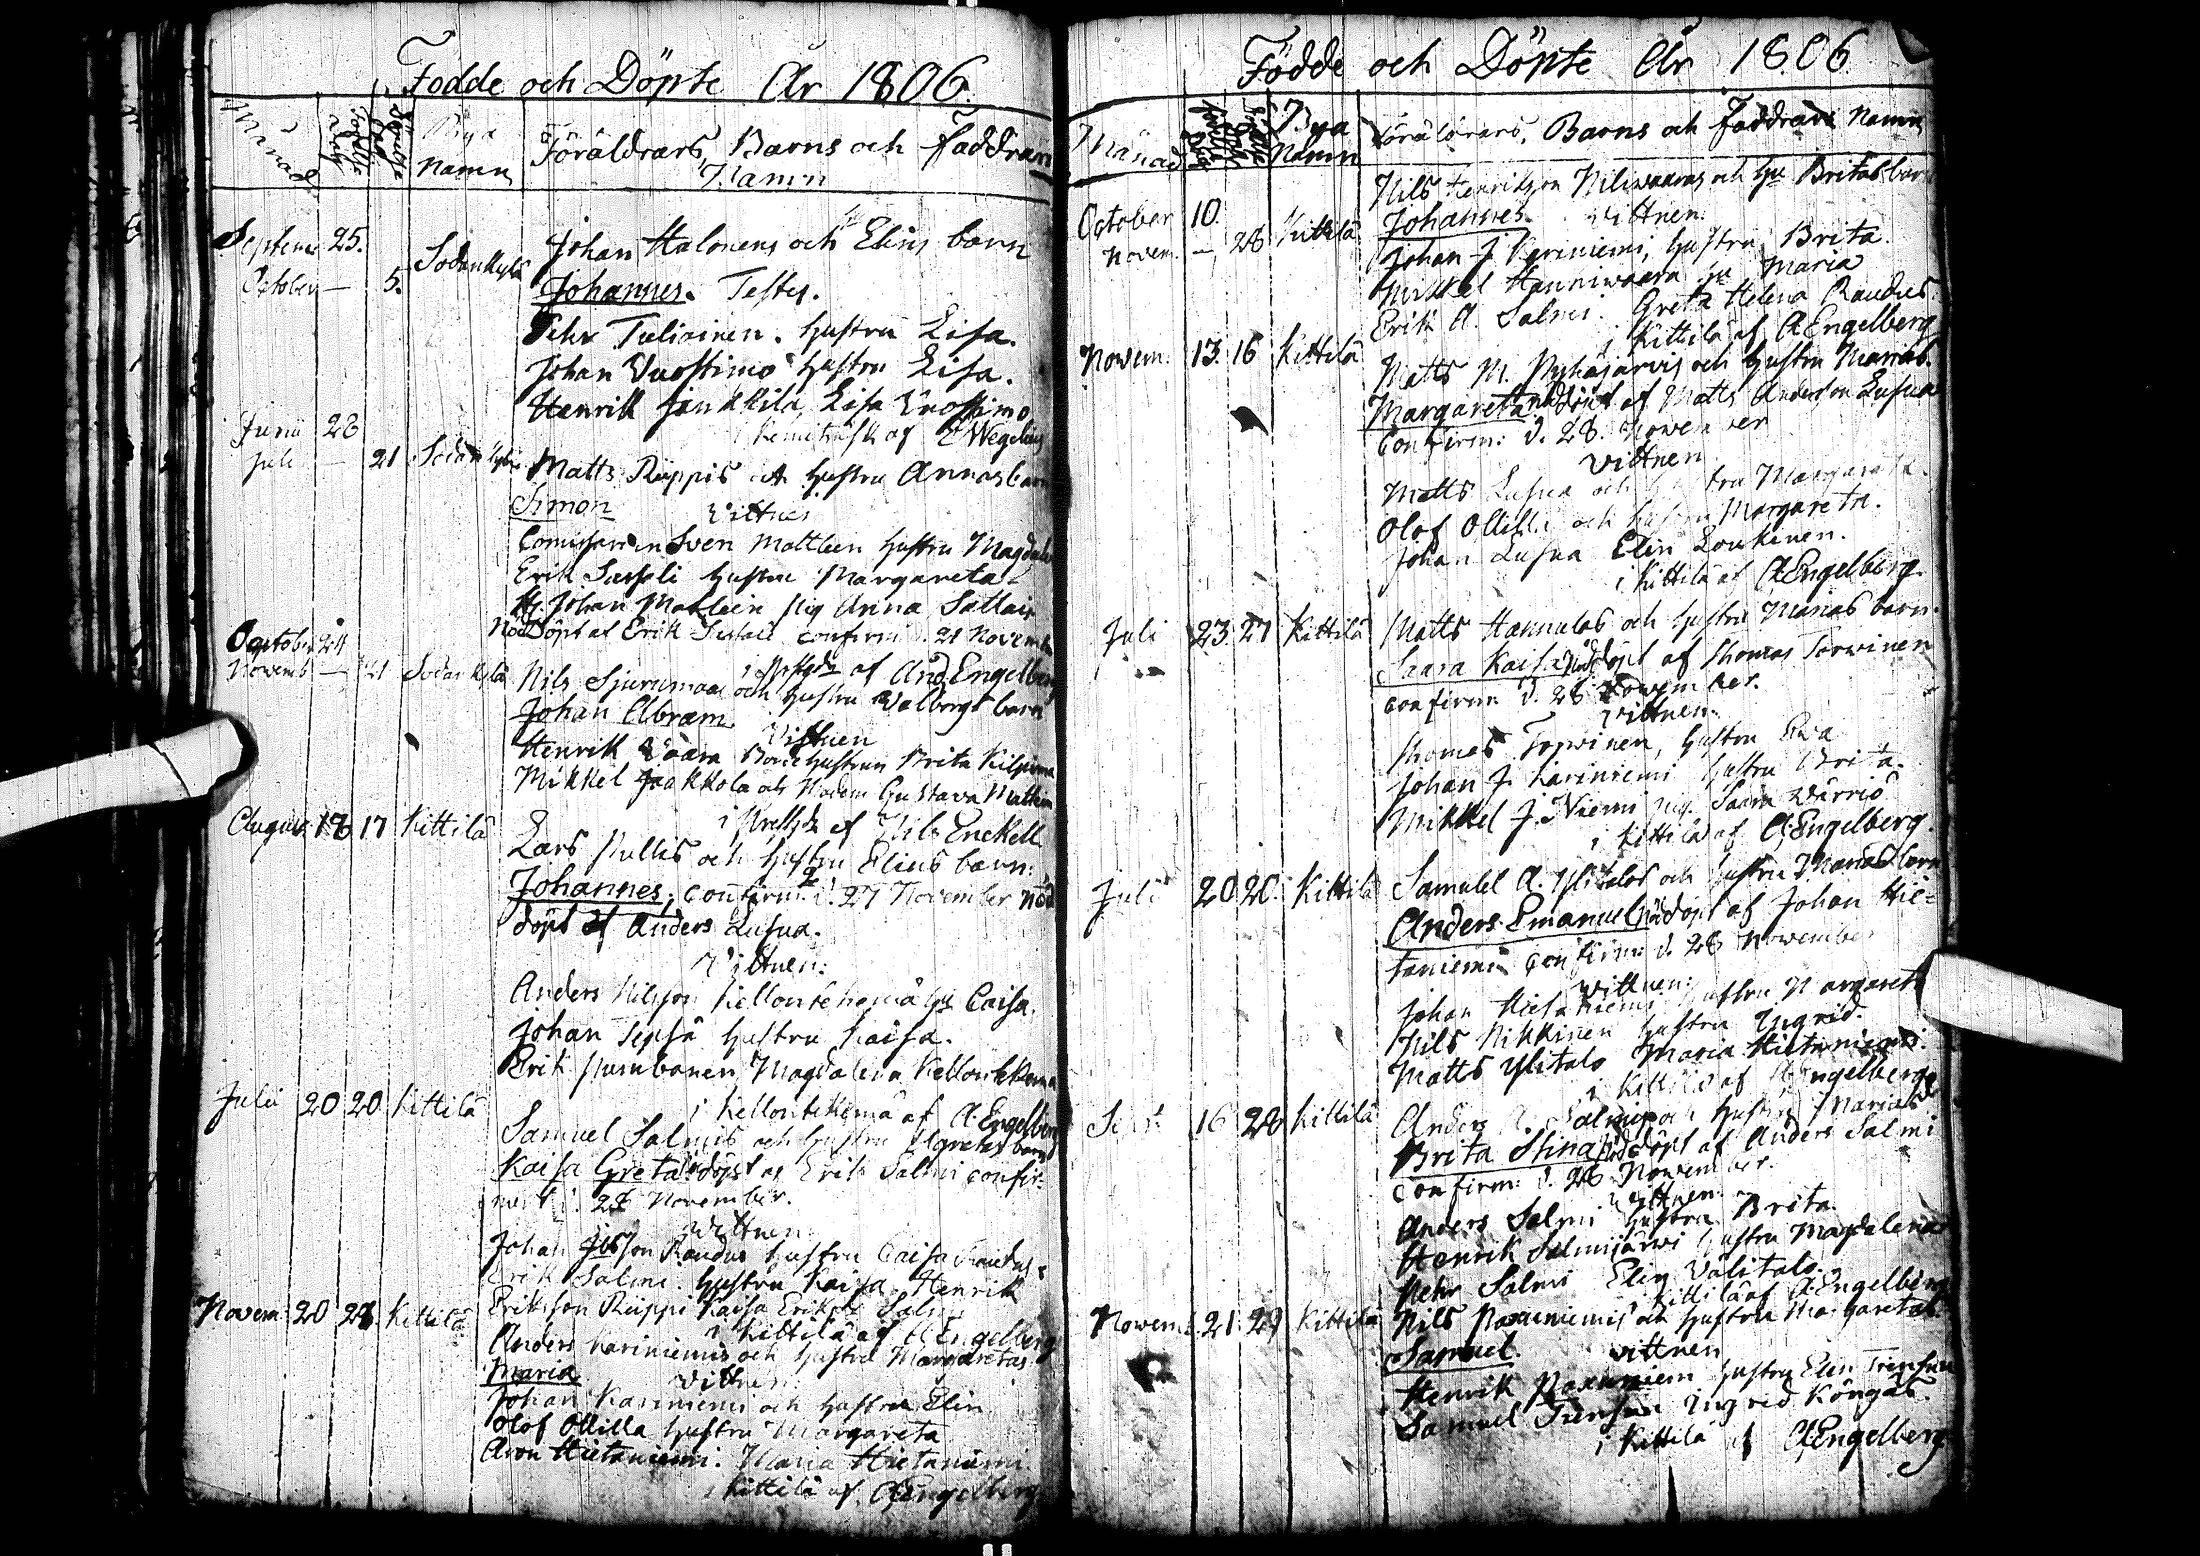 Födde och Döpte År 1806.
Månad Födelse dag Döpelse dag Bya Namn Föräldrars, Barns och faddrars
Namn
Septem 25. Johan Halonens och Elins barn
October — 5. Sodankylä Johannes. Testes.
Pehr Tuliainen. hustru Lisa.
Johan Vuostimo hustru Lisa.
Henrik Jankkila, Lisa Vuostimo
i Kemiträsk af E Wegelius
Junii 28
Juli — 21 Sodankylä Matts Riippis och hustru Annas barn
Simon Vittnen
Comissarien Sven Mattleen hustru Magdalena
Erik Sassali hustru Margareta
H. Johan Matlein pig Anna Sattain
Nöddöpt af Erik Sassali confirm: d. 21 Novemb
i Prestg. af And Engelberg
October 24
Novemb — 21 Sodankylä Nils Sjurumaas och hustru Walborgs barn
Johan Abram. Vittnen
Henrik Vaara Bonde hustrun Brita Kilpimaa
Mikkel Jaakkola och Madem Gustava Matlein
i Prestg. af Nils Enckell
August 16 17 Kittilä Lars Pullis och hustru Elins barn:
Johannes, confirm: d. 27 November Nöd
döpt af Anders Lusua.
Vittnen:
Anders Nilsson Kellontekemä hu Caisa.
Johan Seppä hustru Kaisa.
Erik Kumbanen Magdalena Kellontekemä
i Kellontekemä af A. Engelberg
Julii 20 20 Kittilä Samuel Salmis och hustru Margretas barn
Kaisa Greta nöddöpt af Erik Salmi confir-
merat d. 28 November.
Vittnen:
Johan Johsson Raudus hustru Caisa Raudus.
Erik Salmi. hustru Kaisa. Henrik
Eriksson Riippi Kaisa Eriksd. Salmi
i Kittilä af A Engelberg
Novem: 20 28 Kittilä Anders Kariniemis och hustru Margaretas
Maria Vittnen
Johan Kariniemi och hustru Elin
Olof Ollilla hustru Margareta
Aron Hietaniemi. Maria Hietaniemi
i Kittilä af. AEngelberg
Födde och Döpte År 1806
Månad Födelse Dag Döpelse Dag Bya Namn Föräldrars, Barns och faddrars Namn
Nils Henriksson Niliwaaras och hu Britas barn
October 10. Johannes. Vittnen:
Novem. — 28 Kittilä Johan J Kariniemi, hustru Brita.
Mikkel Hanniwaara hu Maria
Erik A. Salmi. Greta Helena Raudus
i Kittilä af AEngelberg
Novem. 13. 16 Kittilä Matts M. Pyhäjärvis och hustru Marias b.
Margareta nöddöpt af Matts Andersson Lusua
Confirm: d. 28. November
Vittnen
Matts Lusua och hustru Margareta.
Olof Ollilla och hustru Margareta.
Johan Lusua Elin Loukinen.
i Kittilä af AEngelberg
Juli 23. 27 Kittilä Matts Hannulas och hustru Marias barn.
Saara Kaisa nöddöpt af Thomas Torwinen
confirm: d. 28 November.
Vittnen:
Thomas Torwinen, hustru Ewa
Johan J. Kariniemi hustru Brita.
Mikkel J. Niemi pig. Saara Wärriö
i Kittilä af A.Engelberg.
Juli 20 20. Kittilä Samuel A. Ylitalos och hustru Marias barn
Anders Emanuel nöddöpt af Johan Hie-
taniemi confirm: d. 28 November
Vittnen:
Johan Hietaniemi hustru Margareta
Nils Nikkinen hustru Ingrid.
Matts Ylitalo Maria Hietaniemi.
i Kittilä af AEngelberg
Sept. 16 28 Kittilä Anders A. Salmis och hustru Marias b
Brita Stina nöddöpt af Anders Salmi
Confirm: d. 28 November.
Vittnen:
Anders Salmi hustru Brita
Henrik Salmijärwi hustru Magdalena
Pehr Salmi Elin Välitalo.
i Kittilä af A.Engelberg
Novem: 21. 29 Kittilä Nils Paxuniemis och hustru Margaretas
Samuel. Vittnen
Henrik Paxuniemi hustru Elin
Samuel Ingrid Köngäs.
i Kittilä af AEngelberg